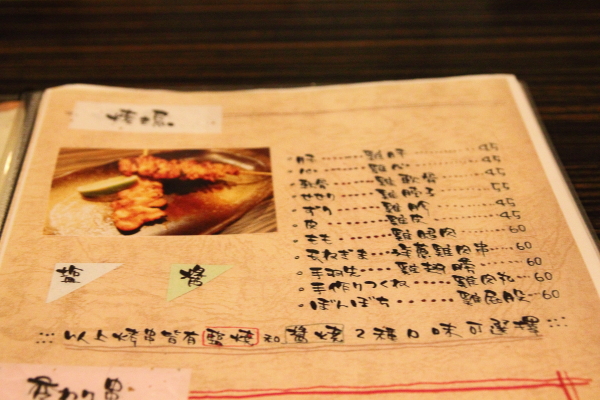 肝……雞肝……45
雞心……45
軟骨……雞軟骨……45
せせり……雞脖子……55
ずり……雞胗……45
皮……雞皮……45
もも……雞腿肉……60
ねぎま……蔥雞肉串……60
手羽先……雞翅膀……60
手作りつくね……雞肉丸…60
ぼんぼち……雞屁股…60
以上烤串皆有鹽燒和醬燒2種口味可選擇
変わり串